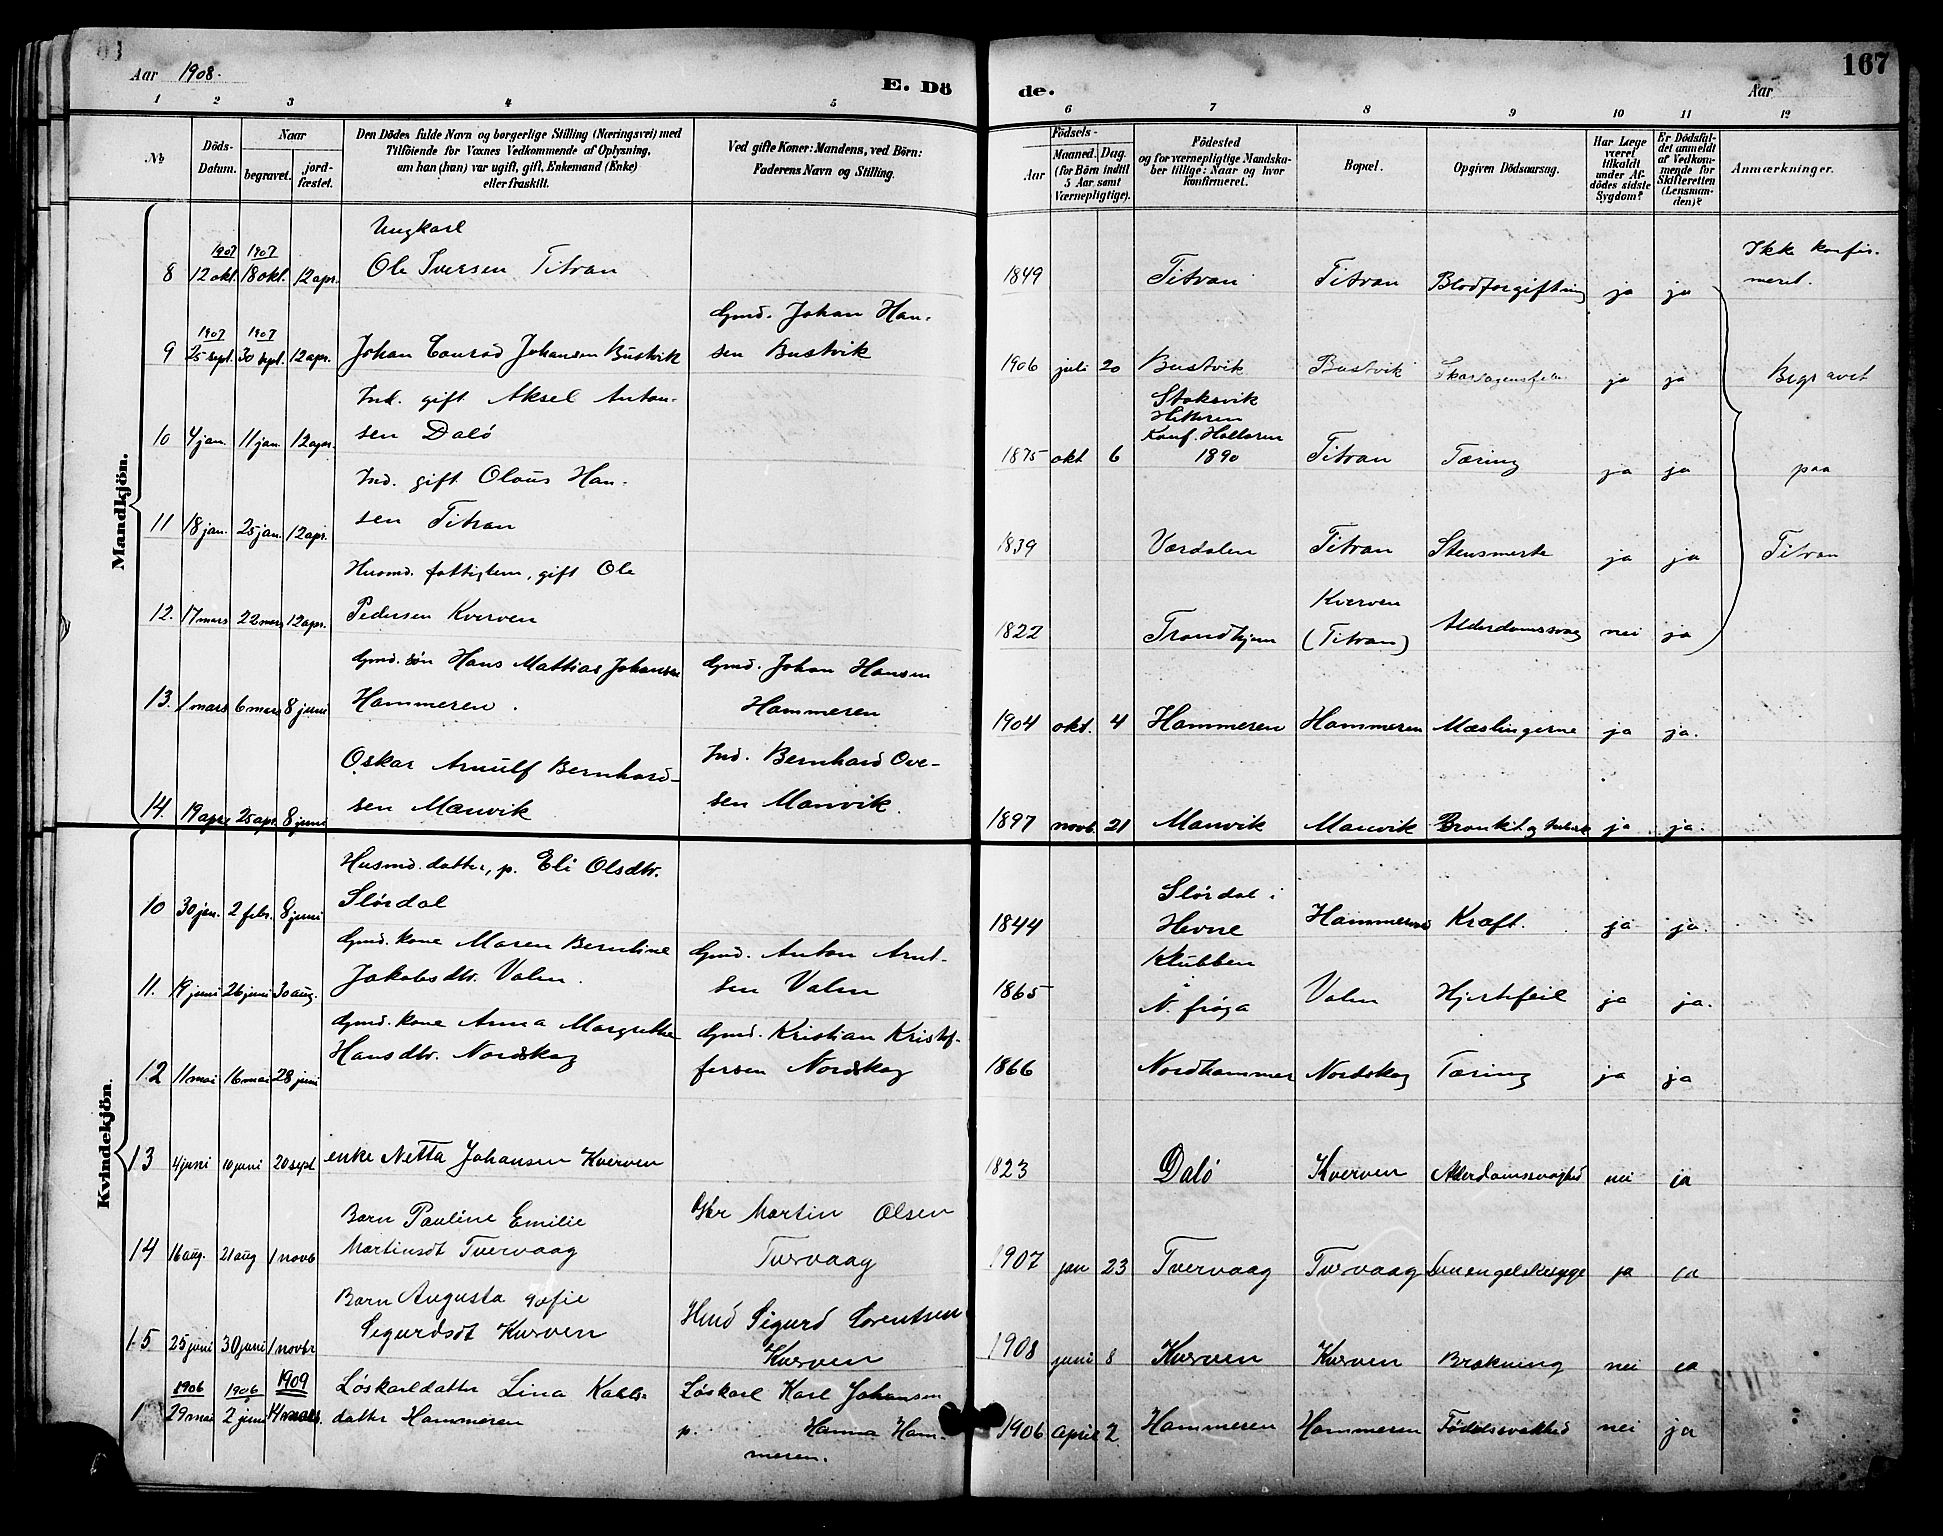 Aar 1908.
E. Dö
de.
Aar
167
1 2 3 4 5
6 7 8 9 10 11 12
No
Döds-
Datum.
Naar
begravet.
jord-
fæstet.
Den Dödes fulde Navn og borgerlige Stilling (Næringsvei) med
Tilföiende for Voxnes Vedkommende af Oplysning,
om han (hun) var ugift, gift, Enkemand (Enke)
eller fraskilt.
Ved gifte Koner: Mandens, ved Börn:
Faderens Navn og Stilling.
Födsels-
Aar
Maaned. Dag.
(for Börn indtil
5 Aar samt
Værnepligtige).
Födested
og for værnepligtige Mandska-
ber tillige: Naar og hvor
konfirmeret.
Bopæl.
Opgiven Dödsaarsag.
Har Læge
været
tilkaldt
under Af-
dödes sidste
Sygdom?
Er Dödsfal-
det anmeldt
af Vedkom-
mende for
Skifteretten
(Lensman-
den)?
Anmærkninger.
Mandkjön.
Ungkarl
1907 1907
8 12 okt. 18 okt. 12 apr. Ole Iversen Titran 1849 Titran Titran Blodforgiftning ja ja Ikke konfir-
meret.
Gmd. Johan Han-
1907 1907
9 25 sept. 30 sept. 12 apr. Johan Conrad Johansen Bustvik sen Bustvik 1906 juli 20 Bustvik Bustvik ja ja Begravet
Ind. gift Aksel Anton-
Stoksvik
Hitteren
10 4 jan. 11 jan. 12 apr. sen Dalö 1875 okt 6 Konf. Halteren
1890 Titran Tæring ja ja paa
Ind. gift Olaus Han-
11 18 jan. 25 jan. 12 apr. sen Titran 1839 Værdalen Titran Stensmerte ja ja Titran
Husmd. fattiglem, gift Ole
12. 17 mars 22 mars 12 apr. Pedersen Kverven 1822 Trondhjem Kverven
(Titran) Alderdomssvag nei ja
Gmd. sön Hans Mattias Johansen Gmd. Johan Hansen
13. 1 mars 6 mars 8 juni Hammeren. Hammeren 1904 okt. 4 Hammeren Hammeren Mæslingerne ja ja.
Oskar Arnulf Bernhard- Ind. Bernhard Ove-
14. 19 apr. 25 apr. 8 juni sen Mænvik sen Manvik. 1897 novb. 21 Manvik Manvik Bronkit og ja ja.
Kvindekjön.
Husmd. datter, p. Eli Olsdtr.
10 30 jan. 2 febr. 8 juni Slördal 1844 Slördal i
Hevne Hammeren Kræft. ja ja.
Gmd. kone Maren Berntine Gmd. Anton Arnt-
11. 19 juni 26 juni 30 aug. Jakobsdtr. Valen. sen Valen 1865 Klubben
N. fröya Valen Hjertefeil ja ja.
Gmd. kone Anna Margrethe Gmd. Kristian Kristof-
12 11 mai 16 mai 28 juni Hansdtr. Nordskag fersen Nordskag 1866 Nordhammer Nordskag Tæring ja ja
13 4 juni 10 juni 20 sept enke Netta Johansen Kverven 1823 Dalö Kverven Alderdomssvaghed nei ja
Barn Pauline Emilie Gbr Martin Olsen
14 16 aug. 21 aug 1 novb Martinsdt Tvervaag Tvervaag 1907 jan 23 Tvervaag Tvervaag ja ja
Barn Augusta Sofie Hmd Sigurd Lorentsen
15 25 juni 30 juni 1 novbr Sigurdsdt Kverven Kverven 1908 juni 8 Kverven Kverven Brækning nei ja
1906 1906 1909 Löskarldatter Lina Karls- Löskarl Karl Johansen
1 29 mai 2 juni 14 mars. datter Hammeren p. Hanna Ham-
meren. 1906 april 2 Hammeren Hammeren Födselssvakhed nei ja